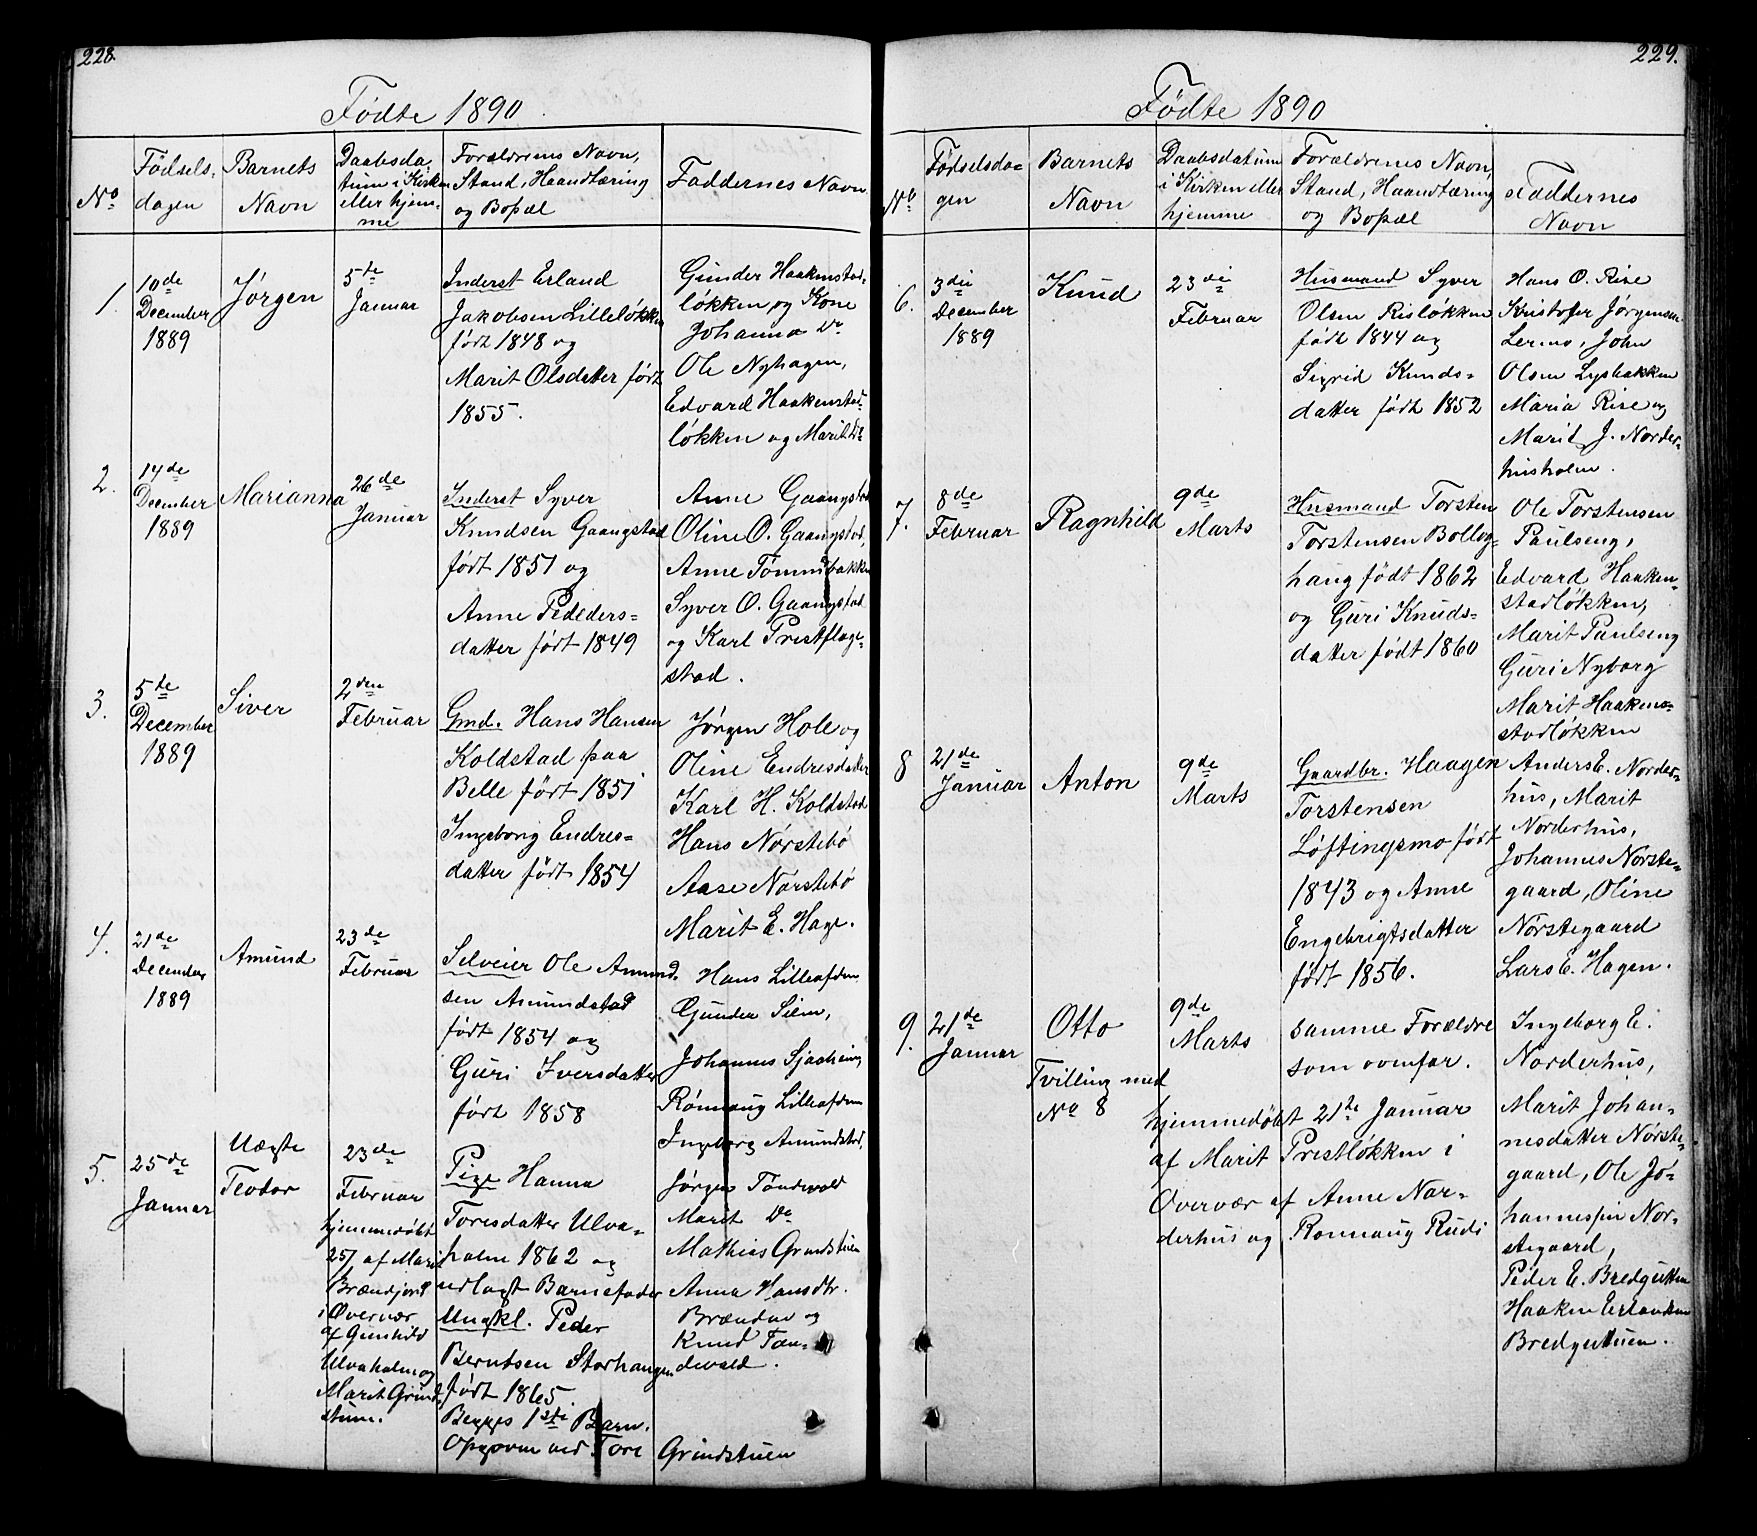 228.
Fødte 1890
No
Fødsels-
dagen
Barnets
Navn
Daabsda-
tum i Kirken
eller hjem-
me
Forældrenes Navn,
Stand, Haandtæring
og Bopæl
Faddernes Navn
1.
10de
December
1889
Jørgen
5te
Januar
Inderst Erland
Jakobsen Lilleløkken
født 1848 og
Marit Olsdatter født
1855.
Gunder Haakenstad-
løkken, og Kone
Johanna Do
Ole Nyhagen,
Edvard Haakenstad-
løkken og Marit Do
2.
14de
December
1889
Marianna
26de
Januar
Inderst Syver
Knudsen Gaangstad
født 1851 og
Anne Pededers-
datter født 1849
Anne Gaangstad
Oline O. Gaangstad,
Anne Tømmbakken
Syver O. Gaangstad
og Karl Prestflage-
stad.
3.
5te
December
1889
Siver
2den
Februar
Gmd. Hans Hansen
Koldstad paa
Belle født 1851
Ingeborg Endres-
datter født 1854
Jørgen Hole og
Oline Endresdatter
Karl H. Koldstad
Hans Nørstebø
Aase Nørstebø
Marit E. Hage.
4.
21de
December
1889
Amund
23de
Februar
Selveier Ole Amund-
sen Amundstad
født 1854 og
Guri Iversdatter
født 1858
Hans
Gunder
Johannes
Rønnaug
Ingeborg Amundstad,
5.
25de
Januar
Uægte
Teodor
23de
Februar
hjemmedøbt
25/1 af Mari
Brændjord
i Overvær
af Gunhild
Ulvaholm og
Marit Grind-
stuen.
Pige Hanna
Toresdatter Ulva-
holm 1862 og
udlagt Barnefader
Ungkl. Peder
Berntsen Storhaugen
født 1865.
Begges 1ste Barn.
Opgoven ved Tore Grindstuen
Jørgen Tandevold
Marit Do
Mathias Grindstuen
Anna Hansdtr.
Brænden og
Knud Tan-
devold.
229.
Fødte 1890
No
Fødselsda-
gen
Barnets
Navn
Daabsdatum
i Kirken eller
hjemme
Forældrenes Navn,
Stand, Haandtæring
og Bopæl
Faddernes
Navn
6.
3die
December
1889
Knud
23di
Februar
Husmand Syver
Olsen Risløkken
født 1844 og
Sigrid Knuds-
datter født 1852
Hans O. Rise
Kristofer Jørgensen
Lermo, John
Olsen Lysbakken
Maria Rise og
Marit J. Norder-
husholm.
7.
8de
Februar
Ragnhild
9de
Marts
Husmand Torsten
Torstensen Bolleg-
haug født 1862
og Guri Knuds-
datter født 1860
Ole Torstensen
Paulseng,
Edvard Haaken-
stadløkken,
Marit Paulseng
Guri Nyborg
Marit Haaken-
stadløkken
8
21de
Januar
Anton
9de
Marts
Gaardbr. Haagen
Torstensen
Løftingsmo født
1843 og Anne
Engebrigtsdatter
født 1856.
Anders E. Norder-
hus, Marit
Norderhus,
Johannes Nørste-
gaard, Oline
Nørstegaard
Lars E. Hagen.
9.
21de
Januar
Otto
Tvilling med
No 8
9de
Marts
samme Forældre
som ovenfor.
hjemmedøbt 21de Januar
af Marit Prestløkken i
Overvær af Anne Nor-
derhus og Rønnaug Rudi
Ingeborg E.
Norderhus,
Marit Johan-
nesdatter Nørste-
gaard, Ole Jo-
hannessen Nør-
stegaard,
Peder E. Bredgutuen
Haaken Erlandsen
Bredgutuen.